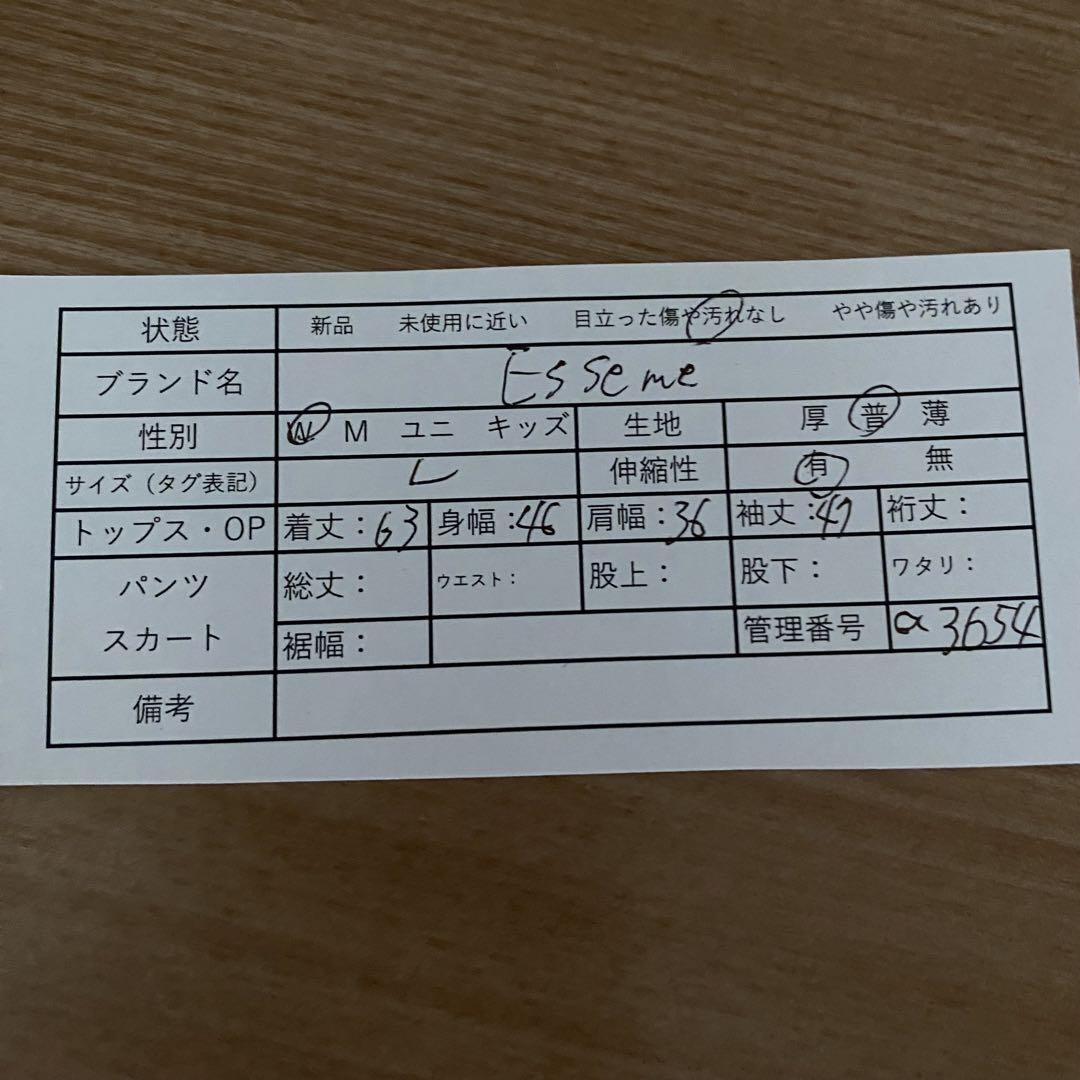 状態 新品 未使用に近い 目立った傷や汚れなし やや傷や汚れあり
ブランド名 Esseme
性別 W M ユニ キッズ 生地 厚 普 薄
サイズ（タグ表記） L 伸縮性 有 無
トップス・OP 着丈：63 身幅：46 肩幅：36 袖丈：47 裄丈：
パンツ 総丈： ウエスト： 股上： 股下： ワタリ：
スカート 裾幅： 管理番号 α3654
備考